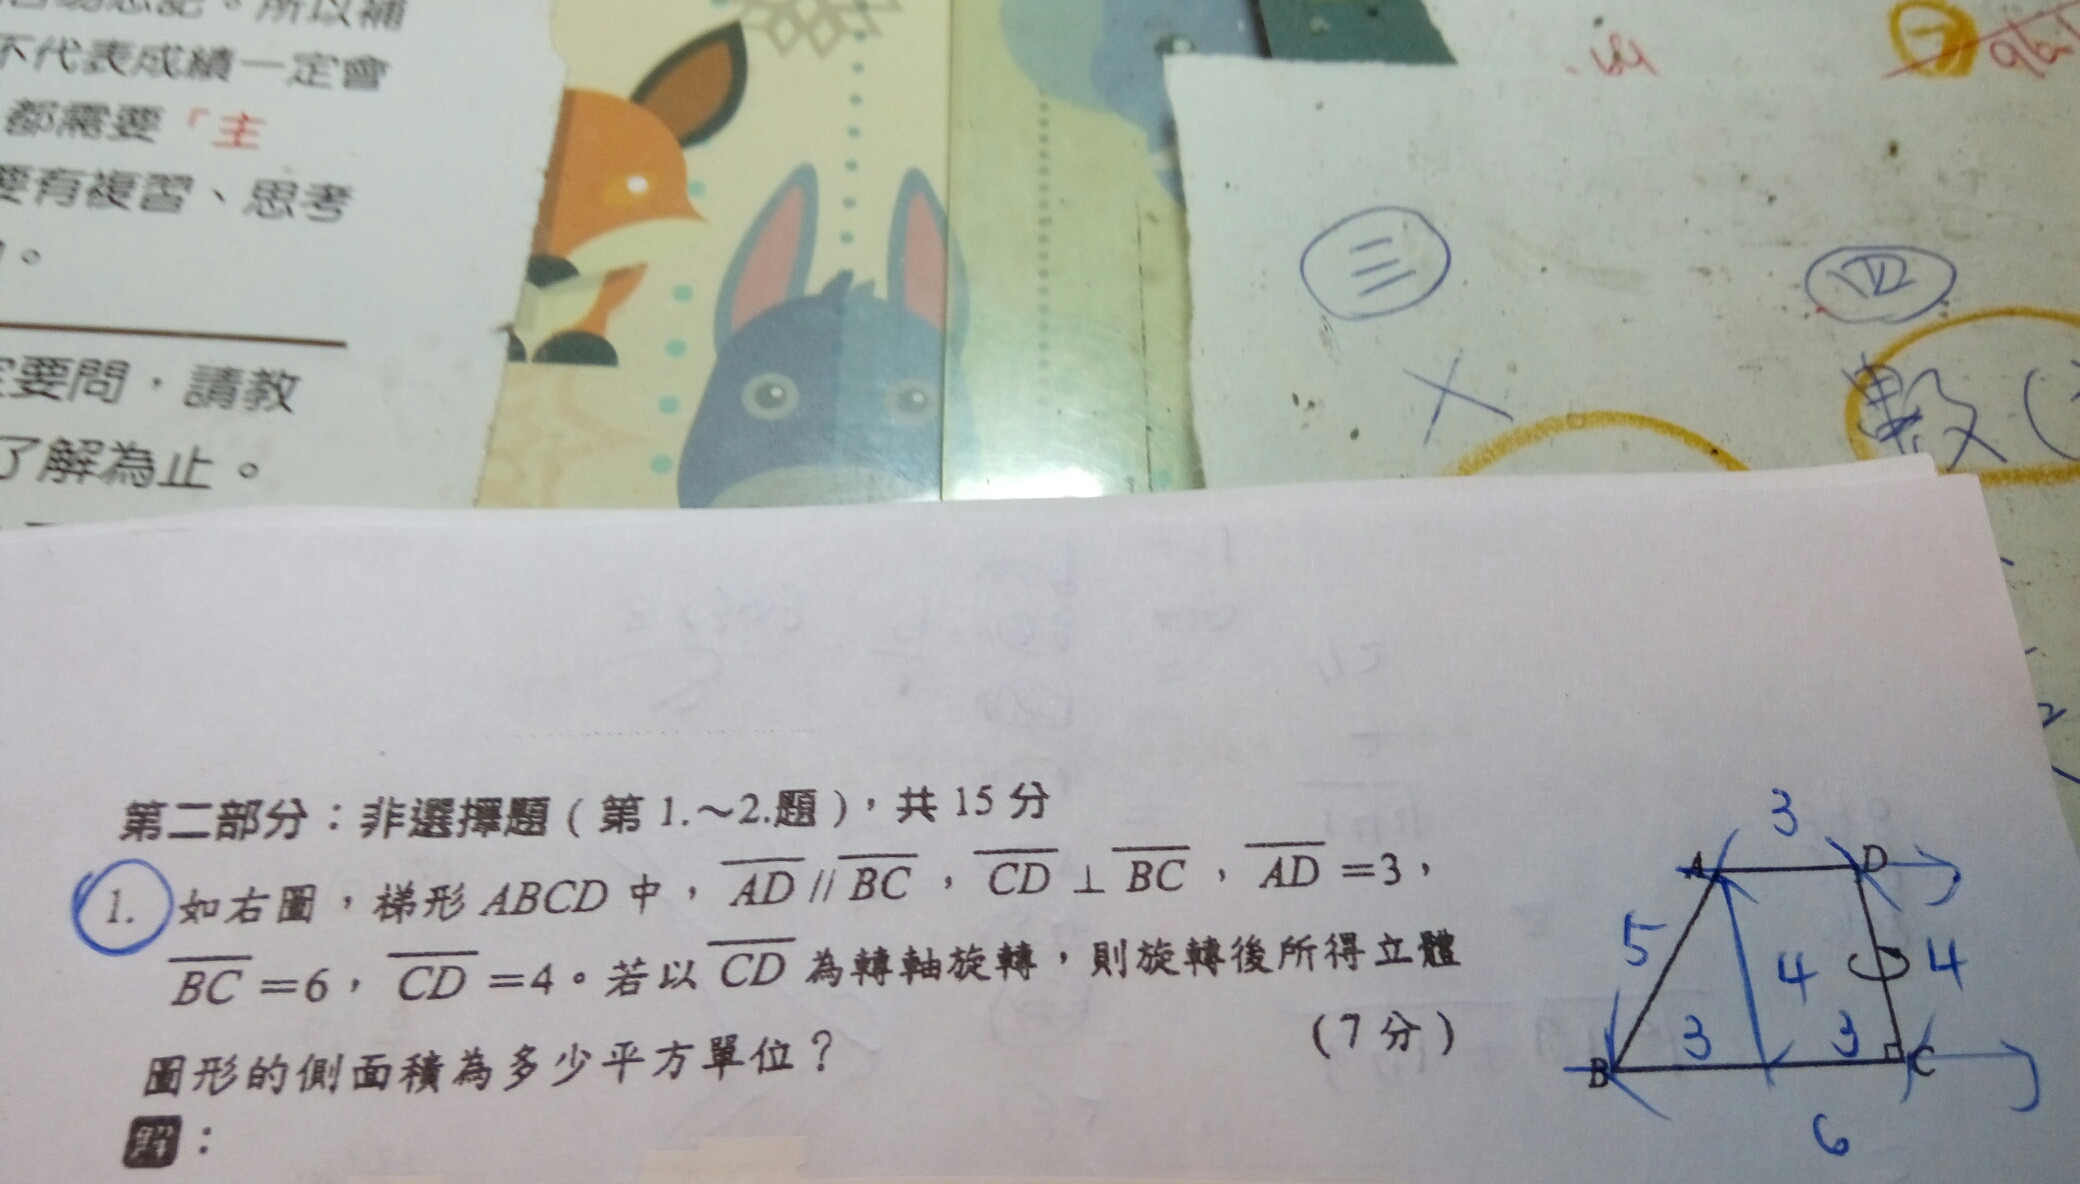 。所以補
不代表成績一定會
都需要「主
要有複習、思考
。
要問，請教
了解為止。
三
四
數(
第二部分：非選擇題(第1.~2.題)，共15分
1. 如右圖，梯形ABCD中，AD//BC，CD⊥BC，AD=3，
BC=6，CD=4。若以CD為轉軸旋轉，則旋轉後所得立體
圖形的側面積為多少平方單位？ (7分)
解：
3
A D
5 4 4
3 3
B C
6